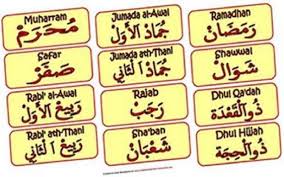 Muharram
مُحَرَّم
Safar
صَفَر
Rabi' al-Awal
رَبِيعُ الأَوَّل
Rabi' ath-Thani
رَبِيعُ الثَّانِي
Jumada al-Awal
جُمَادُ الأَوَّل
Jumada ath-Thani
جُمَادُ الثَّانِي
Rajab
رَجَب
Sha'ban
شَعْبَان
Ramadhan
رَمَضَان
Shawwal
شَوَّال
Dhul Qa'dah
ذُوالْقَعْدَة
Dhul Hijjah
ذُوالْحِجَّة